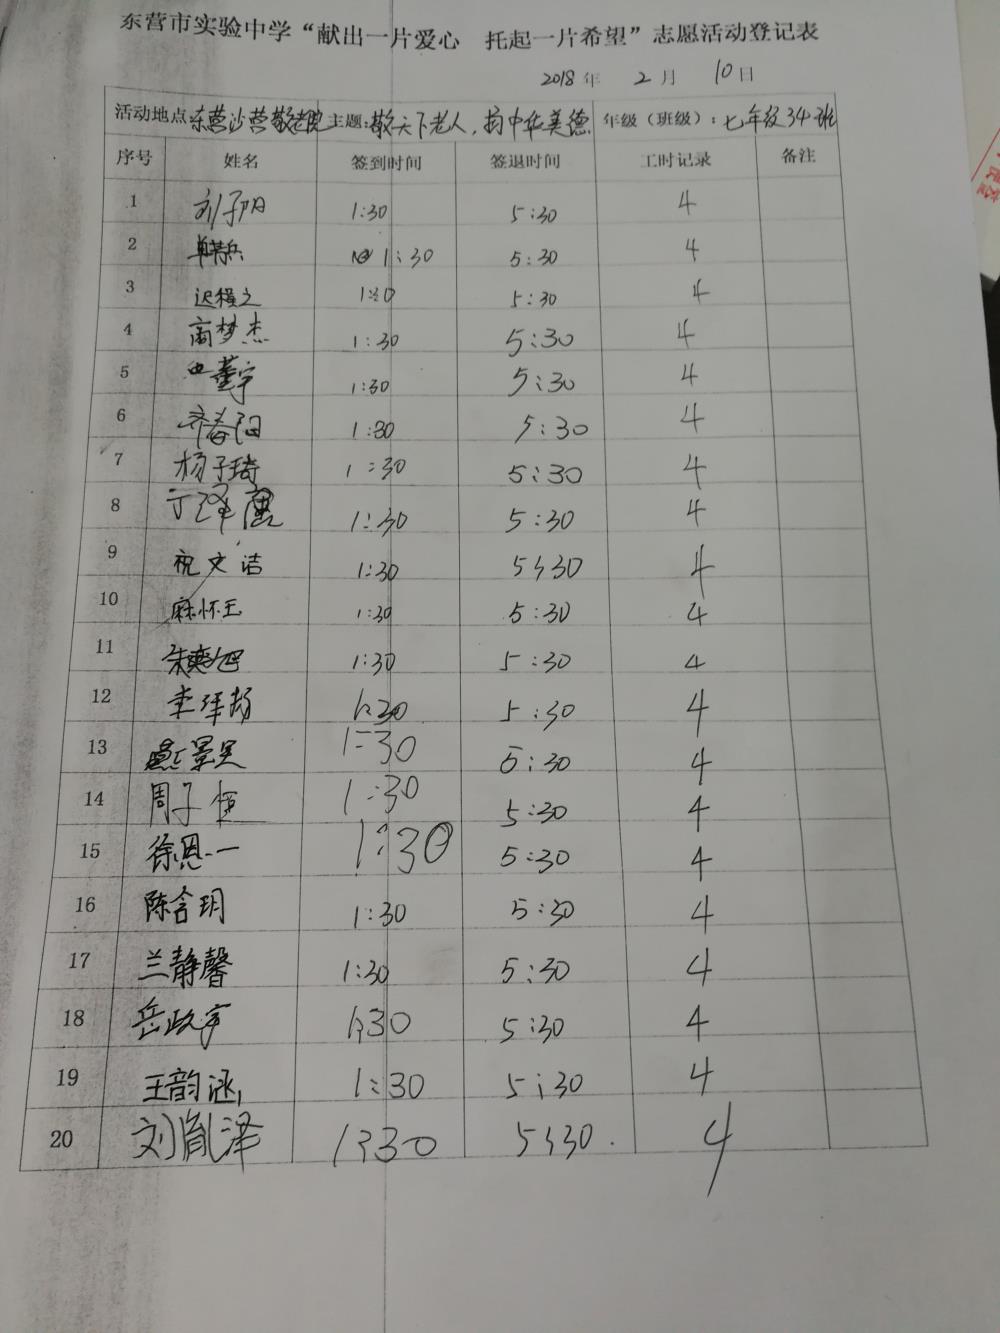 东营市实验中学“献出一片爱心 托起一片希望”志愿活动登记表
2018年 2月 10日
活动地点:东营沙营敬老院 主题:敬天下老人,扬中华美德 年级(班级):七年级34班
序号 姓名 签到时间 签退时间 工时记录 备注
1 刘子阳 1:30 5:30 4
2 1:30 5:30 4
3 1:30 5:30 4
4 商梦杰 1:30 5:30 4
5 1:30 5:30 4
6 齐春阳 1:30 5:30 4
7 杨子琦 1:30 5:30 4
8 丁泽 1:30 5:30 4
9 祝文洁 1:30 5:30 4
10 麻怀玉 1:30 5:30 4
11 朱奕旭 1:30 5:30 4
12 1:30 5:30 4
13 1:30 5:30 4
14 周子恒 1:30 5:30 4
15 徐恩一 1:30 5:30 4
16 陈含玥 1:30 5:30 4
17 兰静馨 1:30 5:30 4
18 岳政宇 1:30 5:30 4
19 王韵涵 1:30 5:30 4
20 刘胤泽 1:30 5:30 4